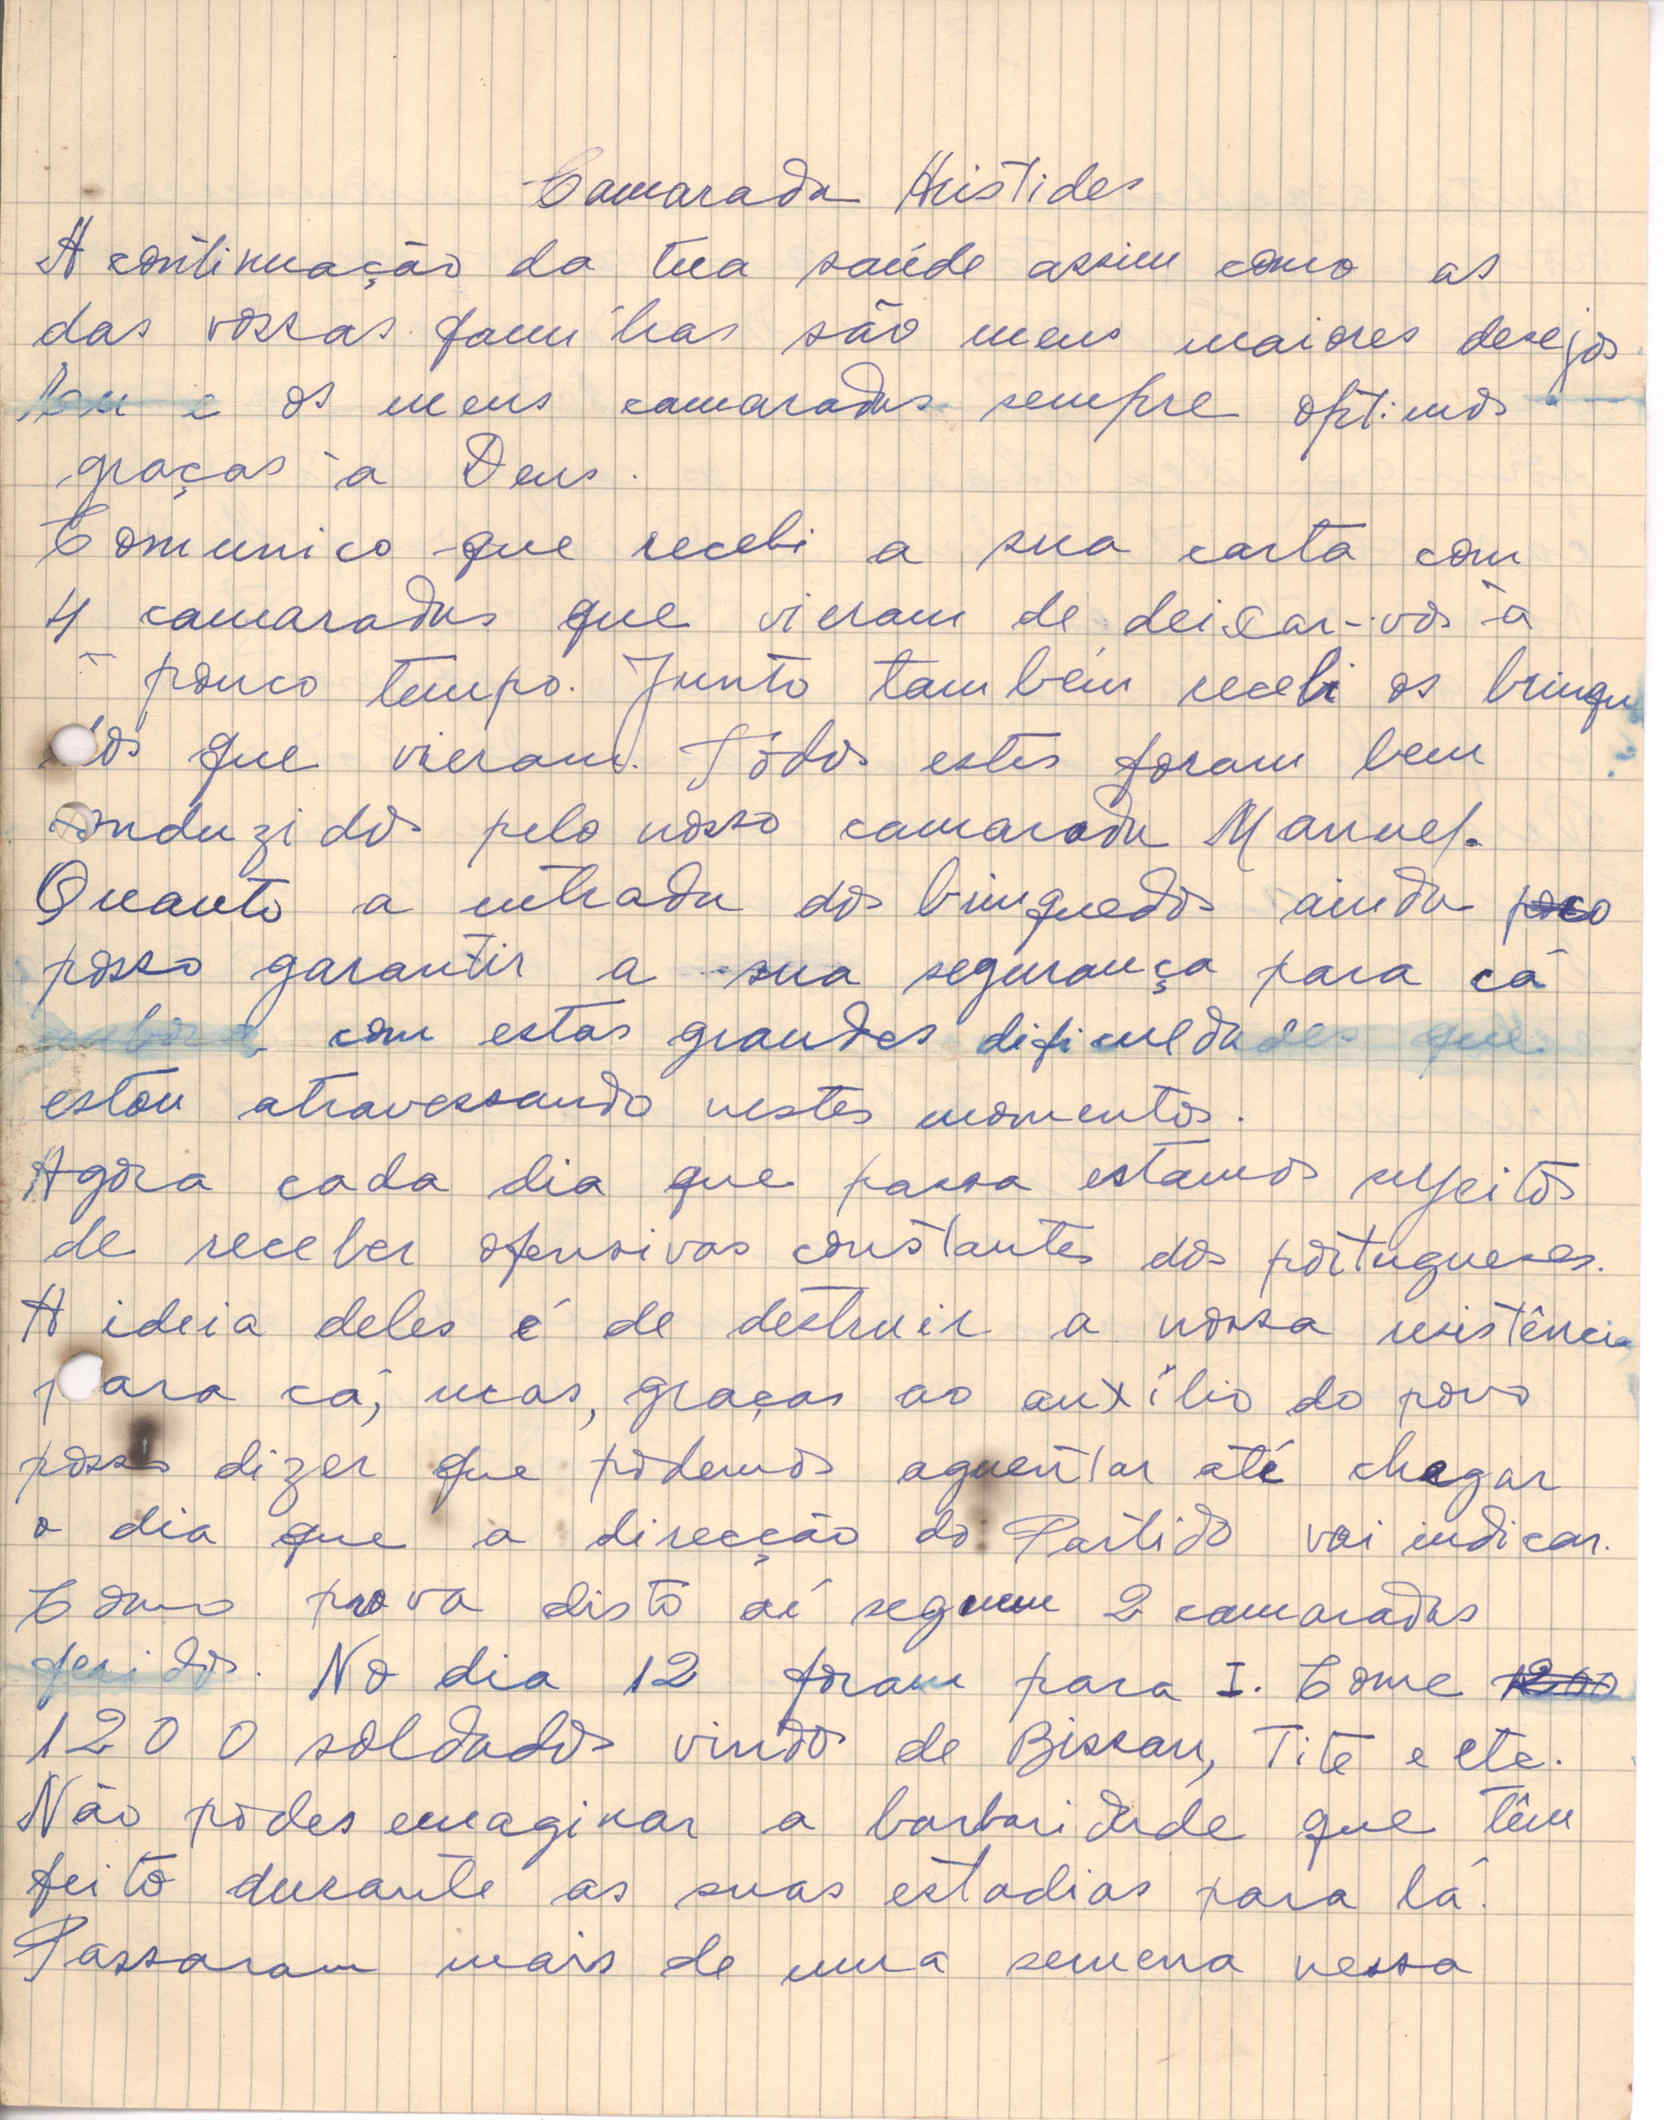 Camarada Aristides
A continuação da tua saúde assim como as
das vossas famílias são meus maiores desejos
Eu e os meus camaradas sempre optimos
graças à Deus.
Comunico que recebi a sua carta com
4 camaradas que vieram de deixar-vos à
pouco tempo. Junto também recebi os brinque
dos que vieram. Todos estes foram bem
conduzidos pelo nosso camarada Manuel.
Quanto a entrada dos brinquedos ainda
posso garantir a sua segurança para cá
embora com estas grandes dificuldades que
estou atravessando nestes momentos.
Agora cada dia que passa estamos sujeitos
de receber ofensivas constantes dos portugueses.
A ideia deles é de destruir a nossa resistência
para cá, mas, graças ao auxílio do povo
posso dizer que podemos aguentar até chegar
o dia que a direcção do Partido vai indicar.
Como prova disto aí seguem 2 camaradas
feridos. No dia 12 foram para I. Come 1200
1200 soldados vindos de Bissau, Tite e etc.
Não podes emaginar a barbaridade que têm
feito durante as suas estadias para lá.
Passaram mais de uma semena nessa